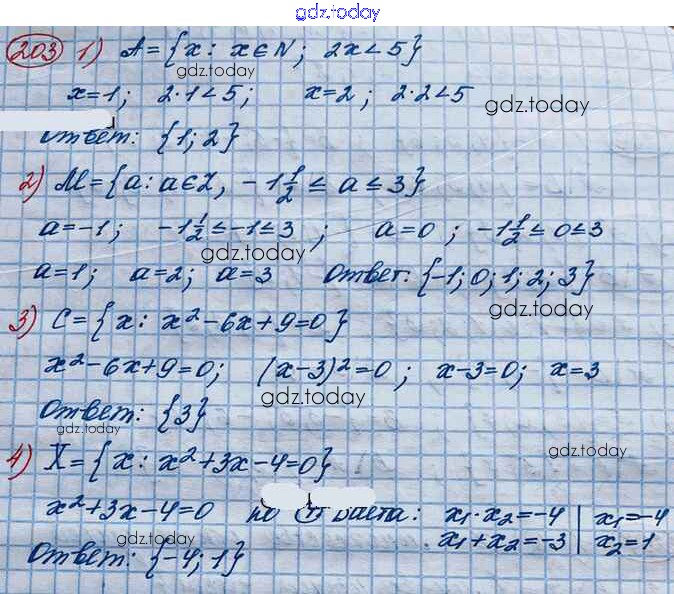 gdz.today
203 1) A={x: x∈N; 2x<5}
gdz.today
x=1; 2·1<5; x=2; 2·2<5
gdz.today
Ответ: {1; 2}
2) M={a: a∈Z, -1 1/2 ≤ a ≤ 3}
a=-1; -1 1/2 ≤ -1 ≤ 3; a=0; -1 1/2 ≤ 0 ≤ 3
gdz.today
a=1; a=2; a=3 Ответ: {-1; 0; 1; 2; 3}
gdz.today
3) C={x: x²-6x+9=0}
x²-6x+9=0; (x-3)²=0; x-3=0; x=3
gdz.today
Ответ: {3}
gdz.today
4) X={x: x²+3x-4=0}
gdz.today
x²+3x-4=0 по Виета: x₁·x₂=-4 | x₁=-4
x₁+x₂=-3 | x₂=1
gdz.today
Ответ: {-4; 1}